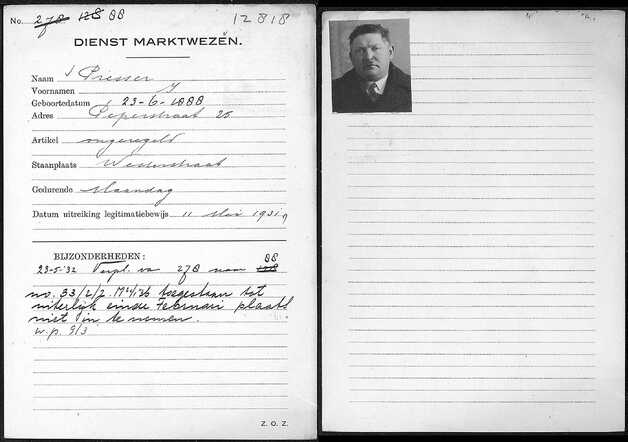 No. 278 128 88
12818
DIENST MARKTWEZEN.
Naam Presser
Voornamen J
Geboortedatum 23-6-1888
Adres Peperstraat 25
Artikel ongeregeld
Staanplaats Westerstraat
Gedurende Maandag
Datum uitreiking legitimatiebewijs 11 Mei 1931
BIJZONDERHEDEN:
88
23-5-'32 Verpl. va 278 naar 128
no. 33/2/2 M. 4/36 toegestaan tot
uiterlijk einde Februari plaats
niet in te nemen.
w.p. 9/3
Z. O. Z.